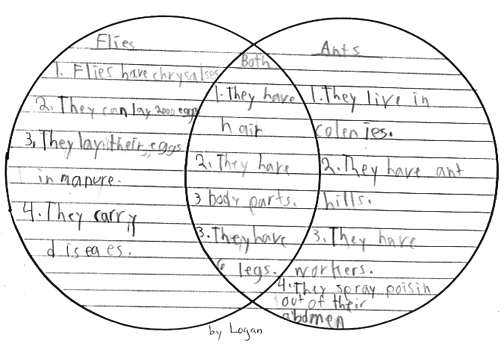 Flies
Both
Ants
1. Flies have chrysalses
2. They can lay 2000 eggs
3. They lay their eggs
in manure.
4. They carry
diseaes.
1. They have
hair
2. They have
3 body parts.
3. They have
6 legs.
1. They live in
colenies.
2. They have ant
hills.
3. They have
workers.
4. They spray poisin
out of their
abdmen
by Logan